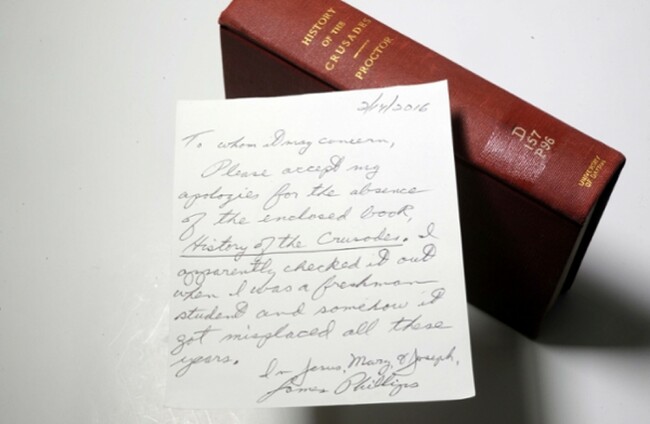 HISTORY
OF THE
CRUSADES
PROCTOR
D
157
P96
UNIVERSITY
OF DAYTON
2/14/2016
To whom it may concern,
Please accept my
apologies for the absence
of the enclosed book,
History of the Crusades. I
apparently checked it out
when I was a freshman
student and somehow it
got misplaced all these
years.
In Jesus, Mary & Joseph,
James Phillips